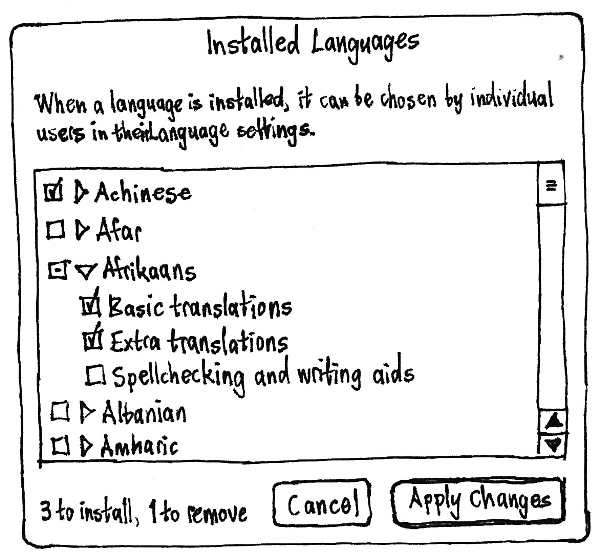 Installed Languages
When a language is installed, it can be chosen by individual
users in their Language settings.
Achinese
Afar
Afrikaans
Basic translations
Extra translations
Spellchecking and writing aids
Albanian
Amharic
3 to install, 1 to remove
Cancel
Apply Changes